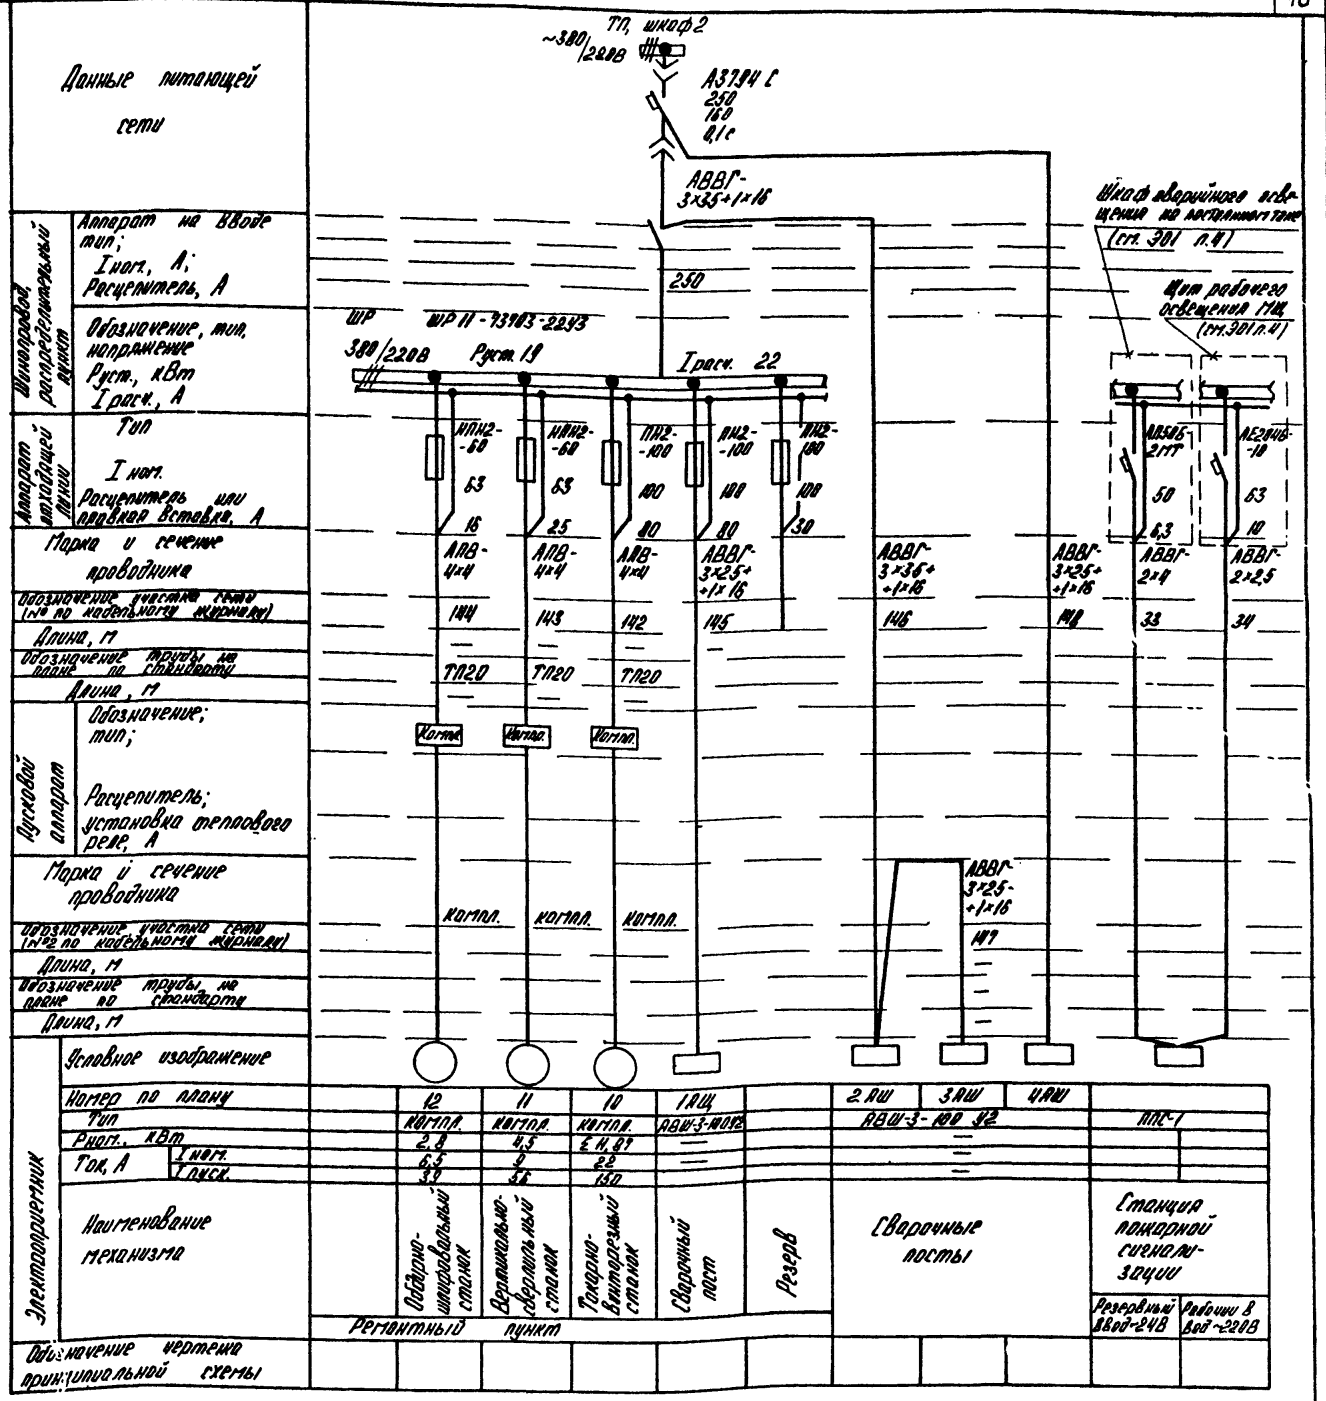 ТП, шкаф 2
~380/220В
Данные питающей
сети
А3794 С
250
160
0,1с
АВВГ-
3×35+1×16
Шкаф аварийного осве-
щения на постоянном токе
(см. ЭО1 л.4)
Щит рабочего
освещения МЩ
(см.ЭО1л.4)
Шинопровод,
распределительный
пункт
Аппарат на вводе
тип;
Iном., А;
Расцепитель, А
250
Обозначение, тип,
напряжение
Руст., кВт
Iрасч., А
ШР ШР 11-73703-22У3
380/220В Руст. 19 Iрасч. 22
Аппарат
отходящей
линии
Тип
Iном.
Расцепитель или
плавкая вставка, А
НПН2-
-60
63
16
НПН2-
-60
63
25
ПН2-
-100
100
80
ПН2-
-100
100
80
ПН2-
100
100
30
АП50Б-
2МТ
50
6,3
АЕ2046-
-10
63
10
Марка и сечение
проводника
АПВ-
4×4
АПВ-
4×4
АПВ-
4×4
АВВГ-
3×25+
+1×16
АВВГ-
3×35+
+1×16
АВВГ-
3×25+
+1×16
АВВГ-
2×4
АВВГ-
2×2,5
Обозначение участка сети
(№ по кабельному журналу)
144 143 142 145 146 148 33 34
Длина, м
— — — —
Обозначение трубы на
плане по стандарту
ТП20 ТП20 ТП20
Длина, м
— — —
Пусковой
аппарат
Обозначение;
тип;
Компл. Компл. Компл.
Расцепитель;
установка теплового
реле, А
Марка и сечение
проводника
компл. компл. компл.
АВВГ-
3×25-
+1×16
Обозначение участка сети
(№2 по кабельному журналу)
147
Длина, м
Обозначение трубы на
плане по стандарту
Длина, м
Электроприемник
Условное изображение
Номер по плану 12 11 10 1АЩ 2АШ 3АШ 4АШ
Тип компл. компл. компл. АВШ-3-100У2 АВШ-3-100 У2 ППС-1
Рном., кВт 2,8 4,5 — —
Ток, А Iном. 6,5 9 22 — —
Iпуск. 39 56 150 —
Наименование
механизма
Обдирно-
шлифовальный
станок
Вертикально-
сверлильный
станок
Токарно-
винторезный
станок
Сварочный
пост
Резерв
Сварочные
посты
Станция
пожарной
сигнали-
зации
Резервный
ввод-24В
Рабочий в
вод ~220В
Ремонтный пункт
Обозначение чертежа
принципиальной схемы